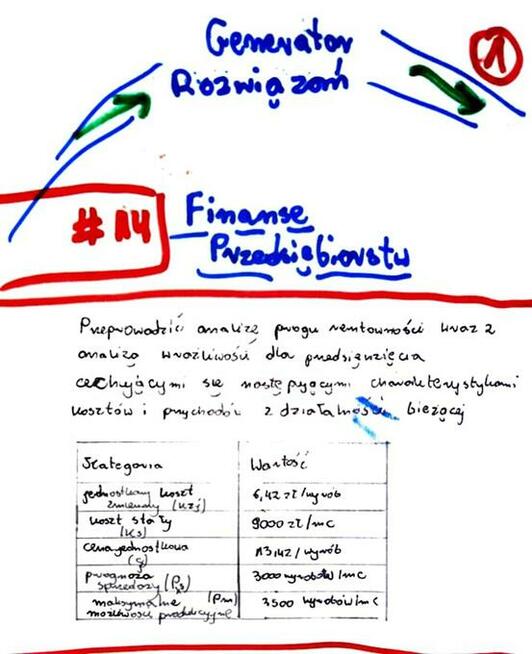 Generator
Rozwiązań
1
#14
Finanse
Przedsiębiorstw
Przeprowadzić analizę progu rentowności wraz z
analizą wrażliwości dla przedsięwzięcia
cechującymi się następującymi charakterystykami
kosztów i przychodów z działalności bieżącej
Kategoria Wartość
jednostkowy koszt zmienny (Kzj) 6,42 zł/wyrób
koszt stały (Ks) 9000 zł/mc
cena jednostkowa 13,42/wyrób
prognoza sprzedaży (Ps) 3000 wyrobów/mc
maksymalne możliwości produkcyjne (Pm) 3500 wyrobów/mc